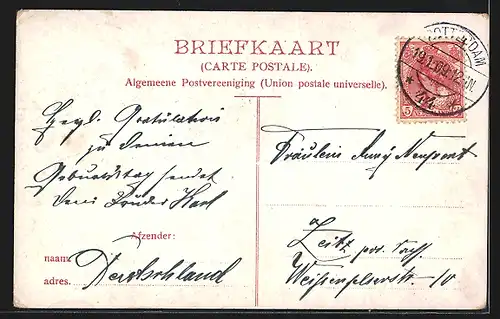 BRIEFKAART
(CARTE POSTALE).
Algemeene Postvereeniging (Union postale universelle).
ROTTERDAM
5
Herzl. Gratulation
zu deinem
Geburtstag sendet
Dein Bruder Karl
Afzender:
naam:
adres. Deutschland
Fräulein
Zeitz prov. Sachs.
Weißenfelserstr. 10